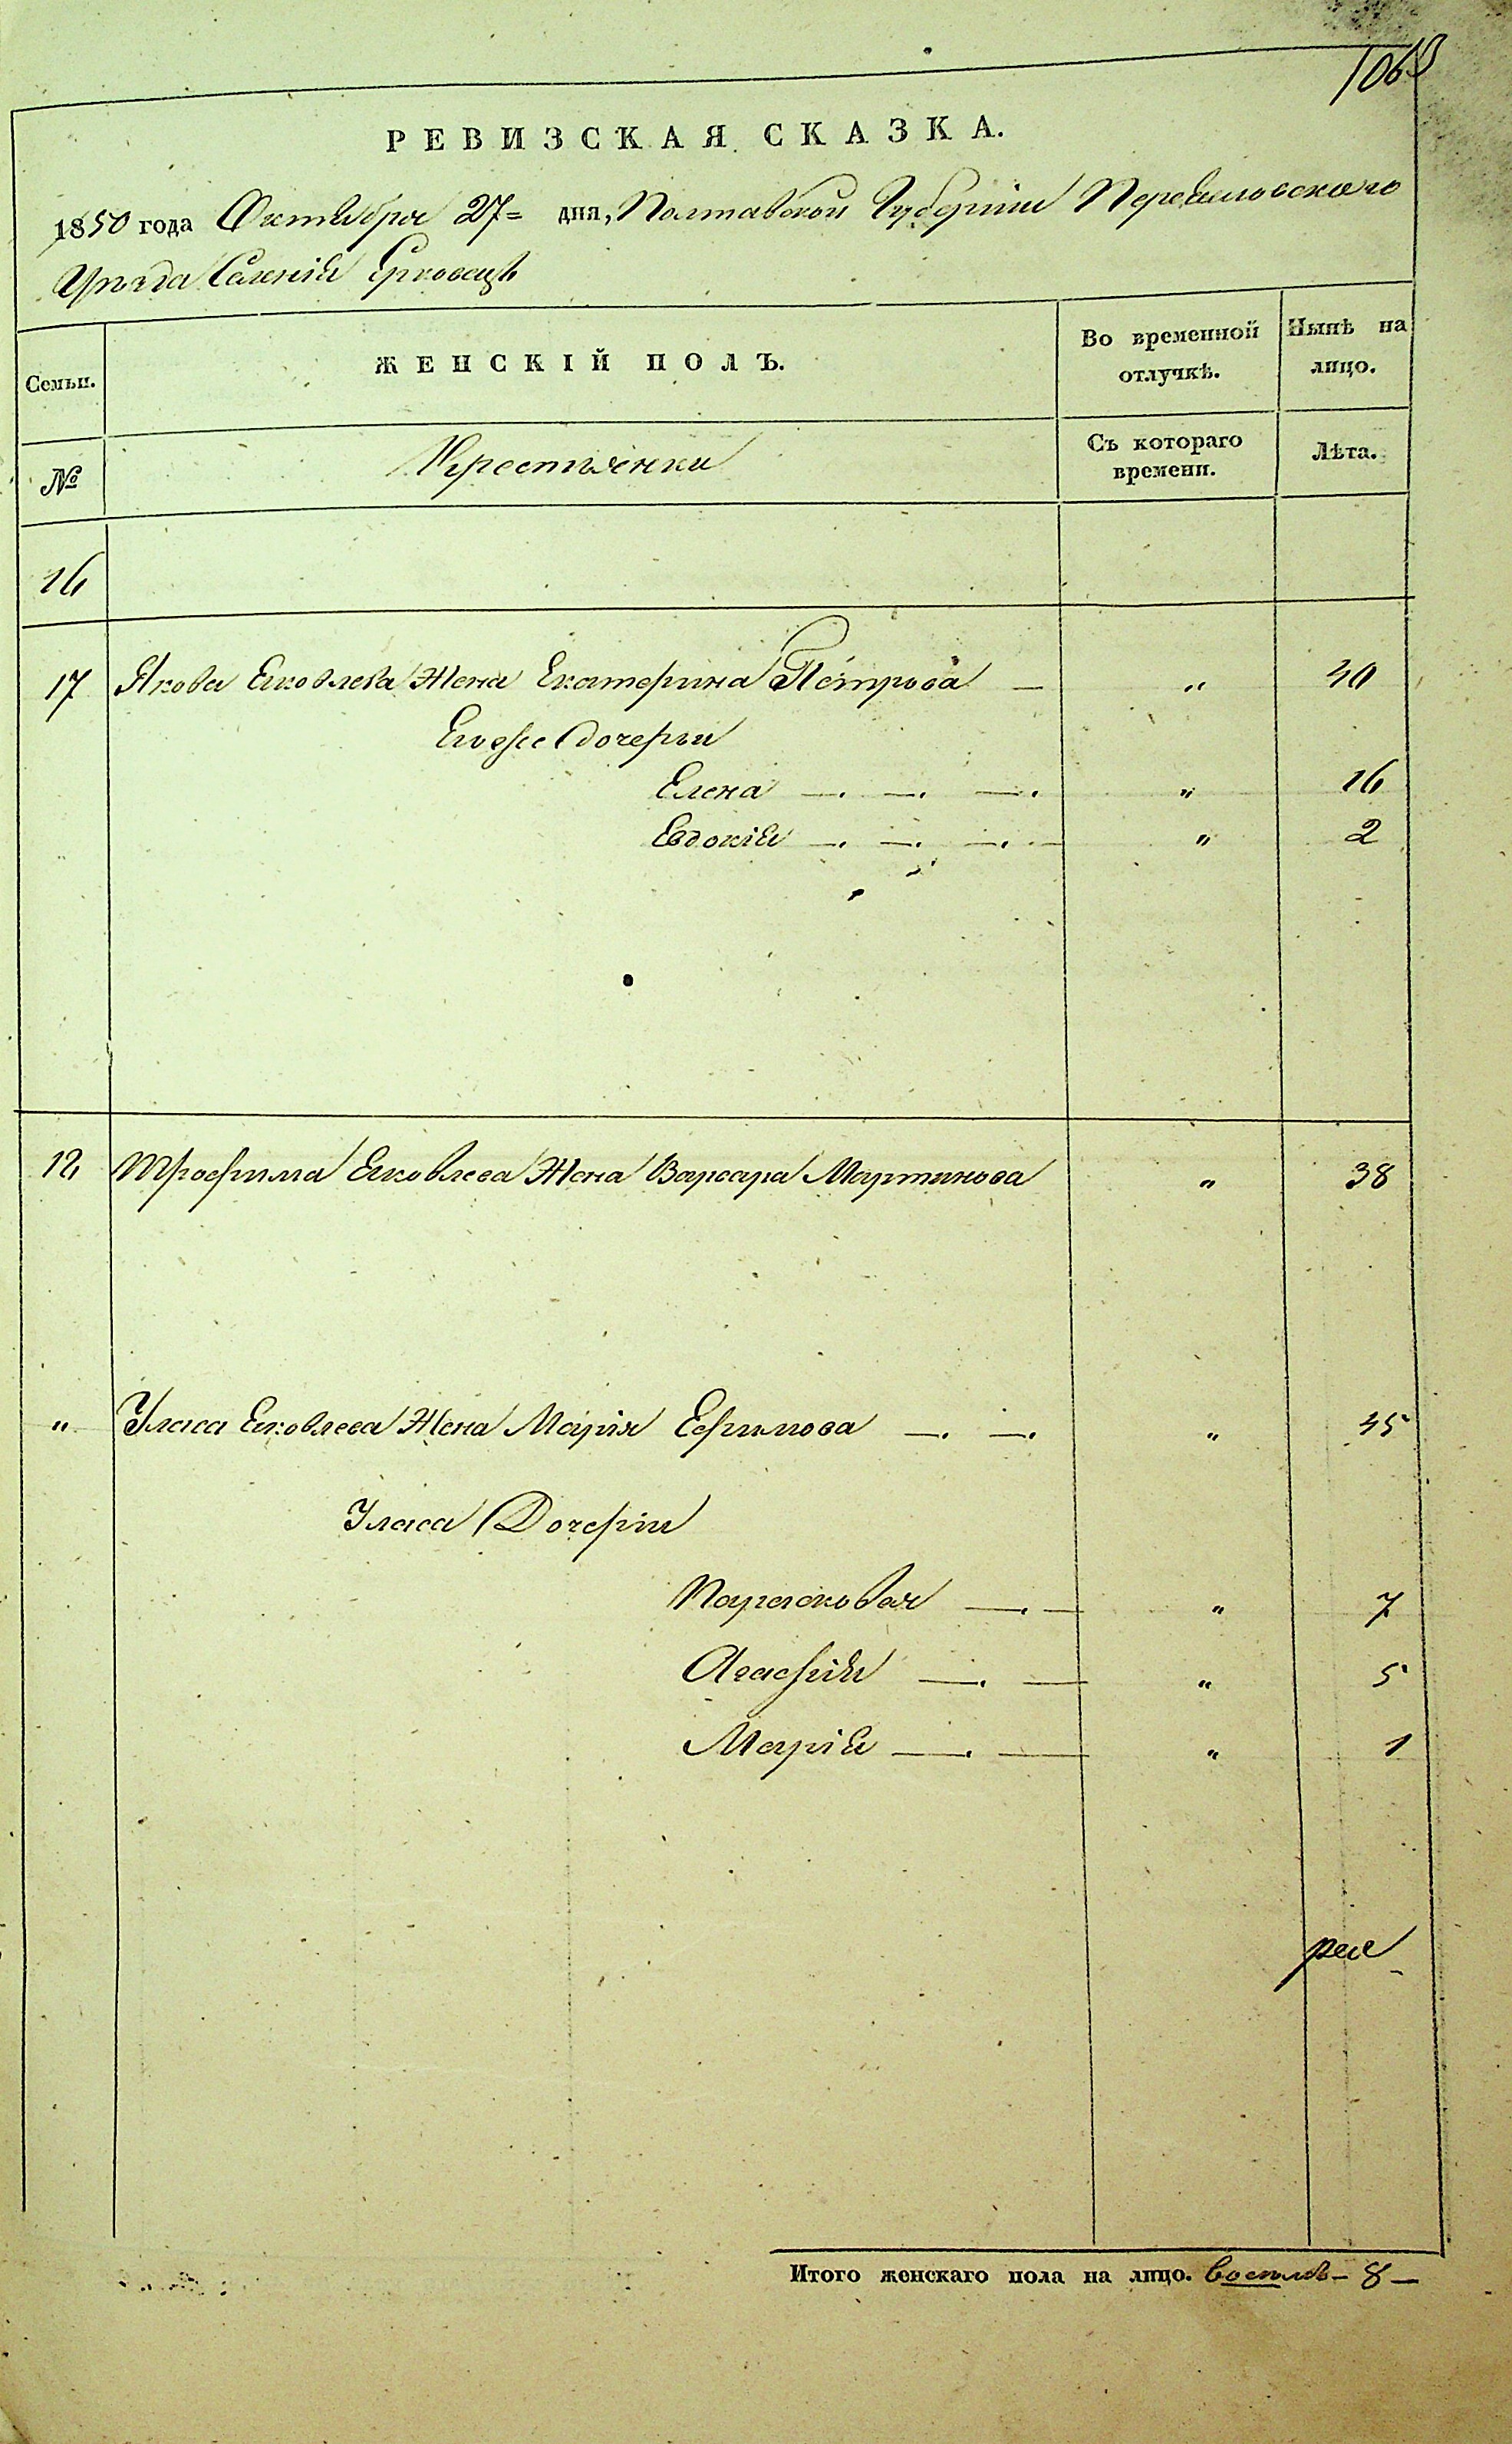 1063
РЕВИЗСКАЯ СКАЗКА.
1850 года Октября 27 = дня, Полтавской Губерніи Переяславскаго
Уезда Селенія Ерковецъ
Семьи. ЖЕНСКІЙ ПОЛЪ. Во временной отлучкѣ. Нынѣ на лицо.
№ Крестьянки Съ котораго времени. Лѣта.
16
17 Якова Яковлева Жена Екатерина Петрова — „ 40
Егоже дочерьи
Елена —. —. —. „ 16
Евдокія —. —. —. — „ 2
12 Трофима Яковлева Жена Варвара Мартинова „ 38
„ Уласа Яковлева Жена Марія Ефимова —. —. „ 45
Уласа Дочеріи
Парасковея —. — „ 7
Агафія —. — „ 5
Марія —. — „ 1
Итого женскаго пола на лицо. восемь – 8 –